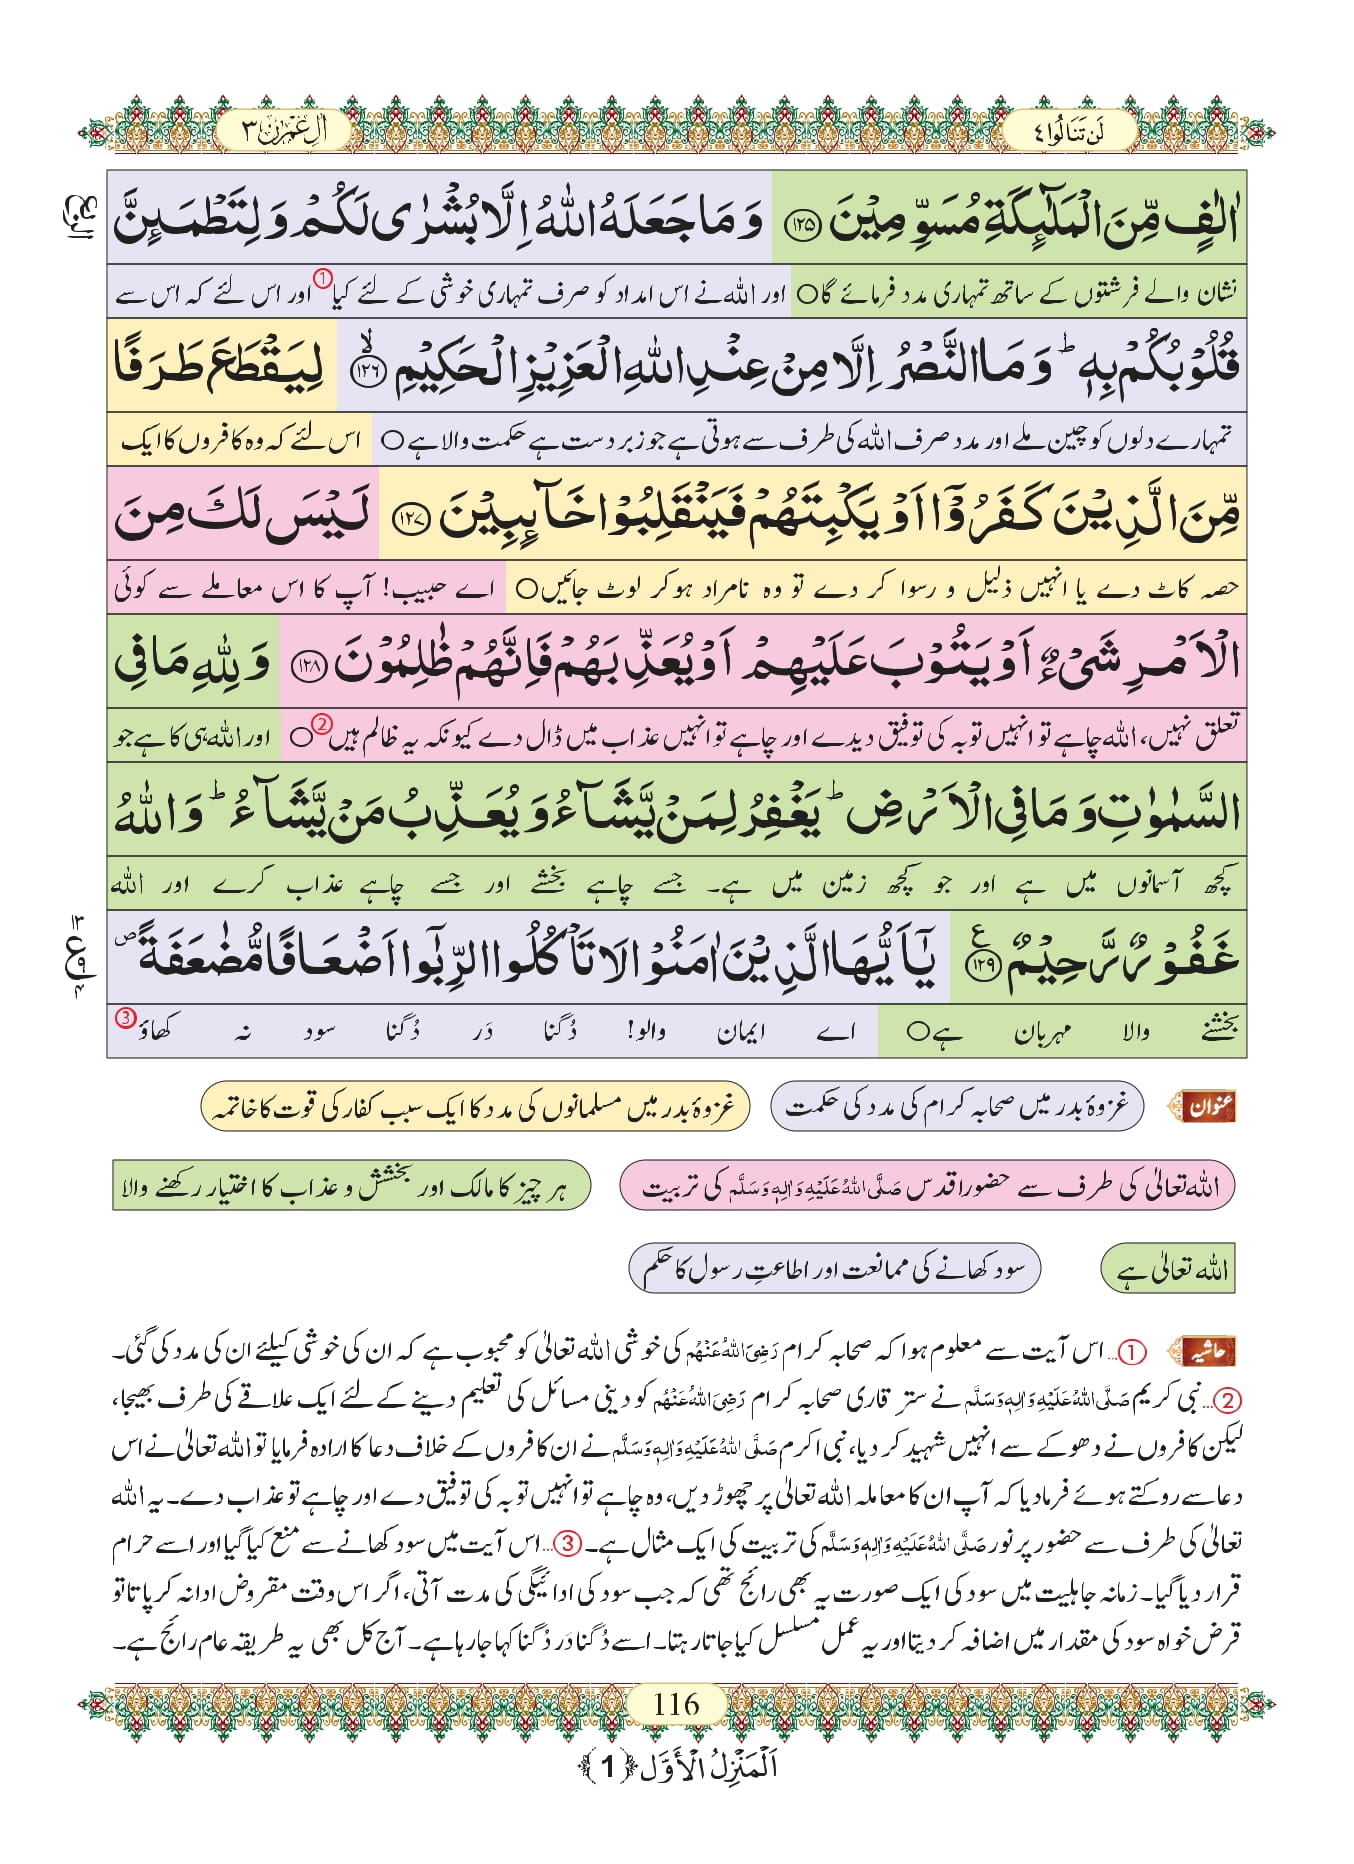 لَنْ تَنَالُوا ٤
اٰلِ عِمْرٰن ٣
اٰلٰفٍ مِّنَ الْمَلٰٓىِٕكَةِ مُسَوِّمِیْنَ ﴿۱۲۵﴾ وَ مَا جَعَلَهُ اللّٰهُ اِلَّا بُشْرٰی لَكُمْ وَ لِتَطْمَىِٕنَّ
نشان والے فرشتوں کے ساتھ تمہاری مدد فرمائے گا○ اور اللہ نے اس امداد کو صرف تمہاری خوشی کے لئے کیا① اور اس لئے کہ اس سے
قُلُوْبُكُمْ بِهٖؕ وَ مَا النَّصْرُ اِلَّا مِنْ عِنْدِ اللّٰهِ الْعَزِیْزِ الْحَكِیْمِۙ ﴿۱۲۶﴾ لِیَقْطَعَ طَرَفًا
تمہارے دلوں کو چین ملے اور مدد صرف اللہ کی طرف سے ہوتی ہے جو زبردست ہے حکمت والا ہے○ اس لئے کہ وہ کافروں کا ایک
مِّنَ الَّذِیْنَ كَفَرُوْۤا اَوْ یَكْبِتَهُمْ فَیَنْقَلِبُوْا خَآىِٕبِیْنَ ﴿۱۲۷﴾ لَیْسَ لَكَ مِنَ
حصہ کاٹ دے یا انہیں ذلیل و رسوا کر دے تو وہ نامراد ہوکر لوٹ جائیں○ اے حبیب! آپ کا اس معاملے سے کوئی
الْاَمْرِ شَیْءٌ اَوْ یَتُوْبَ عَلَیْهِمْ اَوْ یُعَذِّبَهُمْ فَاِنَّهُمْ ظٰلِمُوْنَ ﴿۱۲۸﴾ وَ لِلّٰهِ مَا فِی
تعلق نہیں، اللہ چاہے تو انہیں توبہ کی توفیق دیدے اور چاہے تو انہیں عذاب میں ڈال دے کیونکہ یہ ظالم ہیں②○ اور اللہ ہی کا ہے جو
السَّمٰوٰتِ وَ مَا فِی الْاَرْضِؕ یَغْفِرُ لِمَنْ یَّشَآءُ وَ یُعَذِّبُ مَنْ یَّشَآءُؕ وَ اللّٰهُ
کچھ آسمانوں میں ہے اور جو کچھ زمین میں ہے۔ جسے چاہے بخشے اور جسے چاہے عذاب کرے اور اللہ
غَفُوْرٌ رَّحِیْمٌ ﴿۱۲۹﴾ع یٰۤاَیُّهَا الَّذِیْنَ اٰمَنُوْا لَا تَاْكُلُوا الرِّبٰۤوا اَضْعَافًا مُّضٰعَفَةً۪
بخشنے والا مہربان ہے○ اے ایمان والو! دُگنا دَر دُگنا سود نہ کھاؤ③
عنوان غزوۂ بدر میں صحابہ کرام کی مدد کی حکمت غزوۂ بدر میں مسلمانوں کی مدد کا ایک سبب کفار کی قوت کا خاتمہ
اللہ تعالیٰ کی طرف سے حضور اقدس صَلَّی اللّٰهُ عَلَیْهِ وَاٰلِهٖ وَسَلَّم کی تربیت ہر چیز کا مالک اور بخشش و عذاب کا اختیار رکھنے والا
اللہ تعالیٰ ہے سود کھانے کی ممانعت اور اطاعتِ رسول کا حکم
حاشیہ ①... اس آیت سے معلوم ہوا کہ صحابہ کرام رَضِیَ اللّٰهُ عَنْهُم کی خوشی اللہ تعالیٰ کو محبوب ہے کہ ان کی خوشی کیلئے ان کی مدد کی گئی۔
②... نبی کریم صَلَّی اللّٰهُ عَلَیْهِ وَاٰلِهٖ وَسَلَّم نے ستر قاری صحابہ کرام رَضِیَ اللّٰهُ عَنْهُم کو دینی مسائل کی تعلیم دینے کے لئے ایک علاقے کی طرف بھیجا،
لیکن کافروں نے دھوکے سے انہیں شہید کر دیا، نبی اکرم صَلَّی اللّٰهُ عَلَیْهِ وَاٰلِهٖ وَسَلَّم نے ان کافروں کے خلاف دعا کا ارادہ فرمایا تو اللہ تعالیٰ نے اس
دعا سے روکتے ہوئے فرمادیا کہ آپ ان کا معاملہ اللہ تعالیٰ پر چھوڑ دیں، وہ چاہے تو انہیں توبہ کی توفیق دے اور چاہے تو عذاب دے۔ یہ اللہ
تعالیٰ کی طرف سے حضور پر نور صَلَّی اللّٰهُ عَلَیْهِ وَاٰلِهٖ وَسَلَّم کی تربیت کی ایک مثال ہے۔ ③... اس آیت میں سود کھانے سے منع کیا گیا اور اسے حرام
قرار دیا گیا۔ زمانہ جاہلیت میں سود کی ایک صورت یہ بھی رائج تھی کہ جب سود کی ادائیگی کی مدت آتی، اگر اس وقت مقروض ادا نہ کر پاتا تو
قرض خواہ سود کی مقدار میں اضافہ کر دیتا اور یہ عمل مسلسل کیا جاتا رہتا۔ اسے دُگنا دَر دُگنا کہا جا رہا ہے۔ آج کل بھی یہ طریقہ عام رائج ہے۔
116
اَلْمَنْزِلُ الْأَوَّل ﴿1﴾